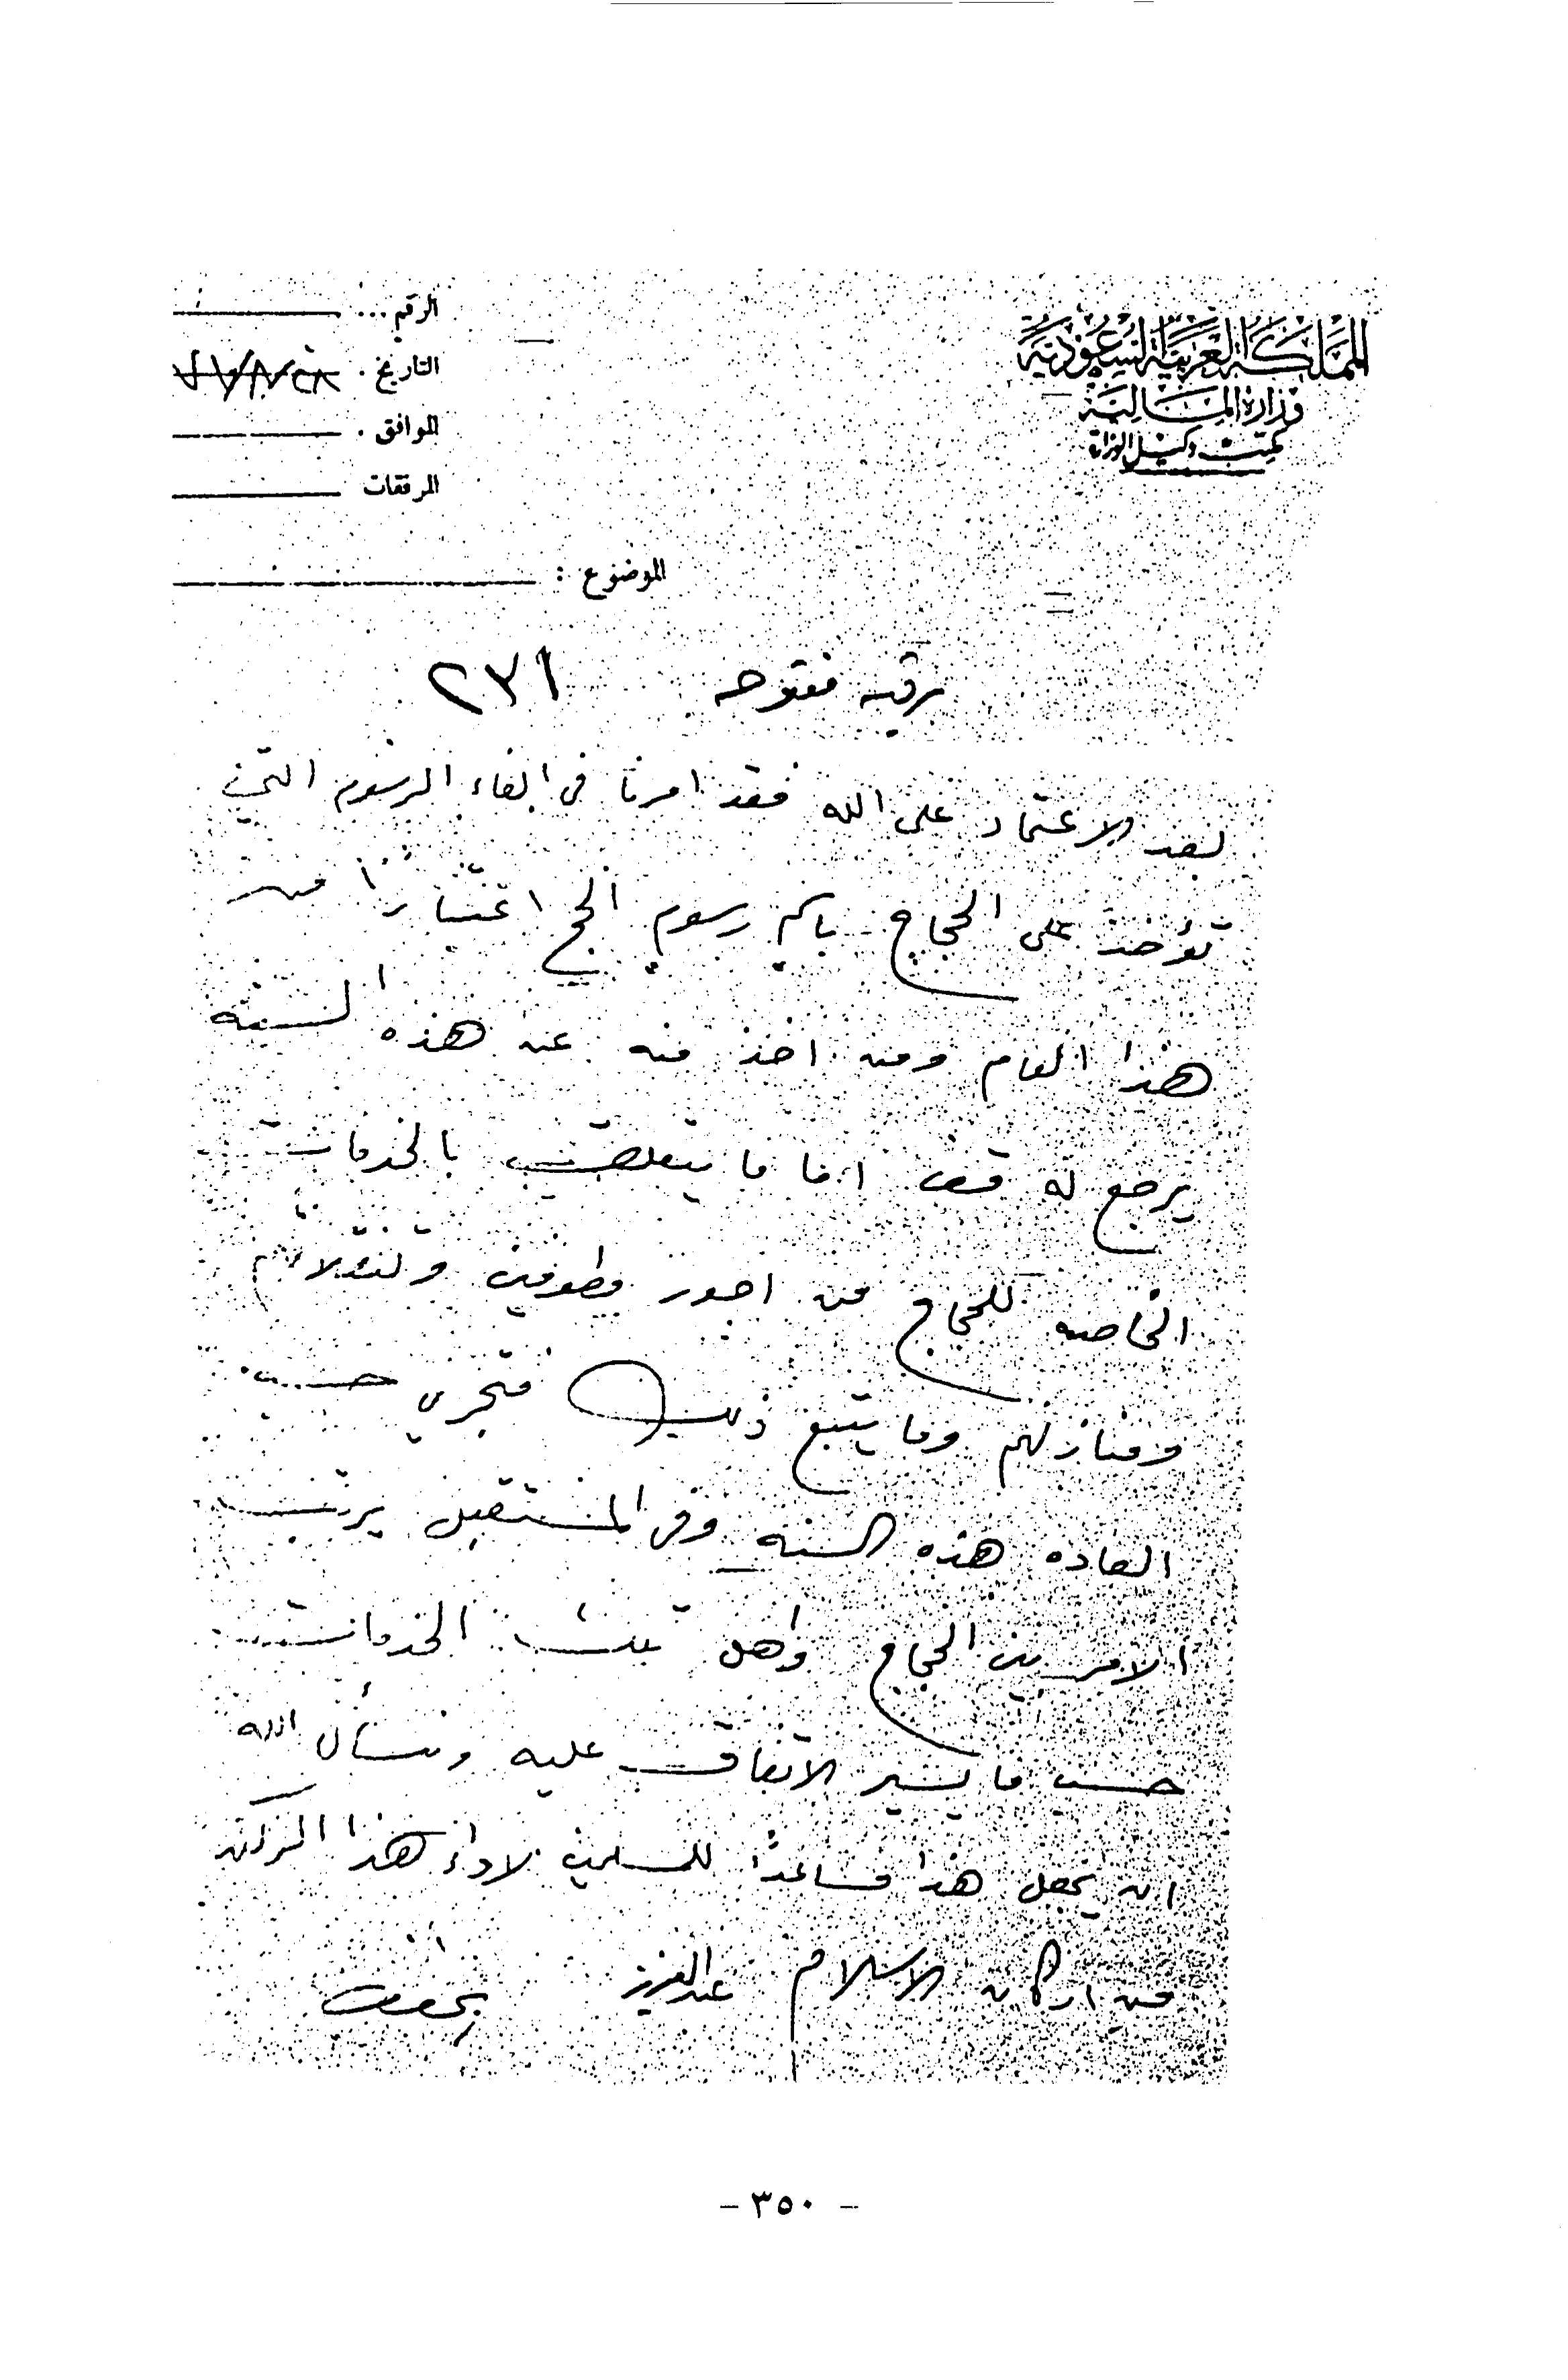 المملكة العربية السعودية
وزارة المالية
مكتب وكيل الوزارة
الرقم ...
التاريخ .
الموافق .
المرفقات
الموضوع :
برقيه مفتوحه ٢٣١
بعد الاعتماد على الله فقد امرنا في الغاء الرسوم التي
تؤخذ على الحجاج باسم رسوم الحج اعتبارا من
هذا العام ومن اخذ منه عن هذه السنه
يرجع له اما ما يتعلق بالخدمات
الخاصه للحجاج من اجور مطوفين وتنقلاتهم
ومنازلهم وما يتبع ذلك فتجري حسب
العاده هذه السنه وفي المستقبل يرتب
الامر بين الحجاج واهل تلك الخدمات
حسب ما يتم الاتفاق عليه ونسأل الله
ان يجعل هذا مساعدا للمسلمين لاداء هذا الركن
من اركان الاسلام عبدالعزيز
- ٣٥٠ -